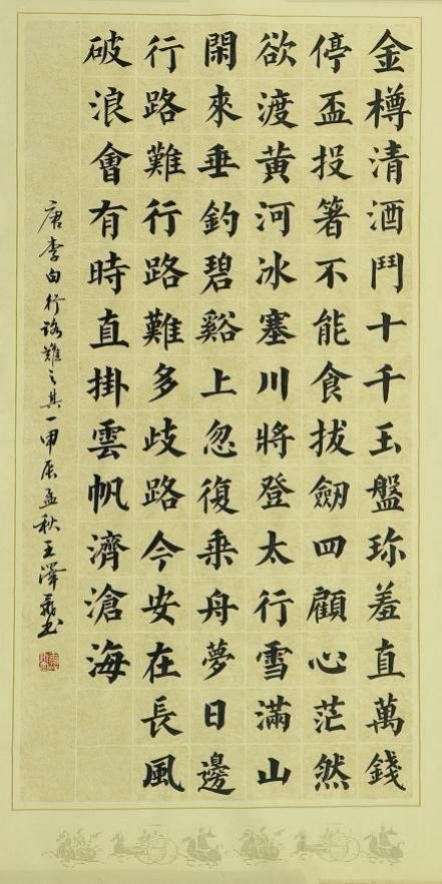 金樽清酒鬥十千玉盤珍羞直萬錢
停盃投箸不能食拔劍四顧心茫然
欲渡黃河冰塞川將登太行雪滿山
閑來垂釣碧谿上忽復乘舟夢日邊
行路難行路難多歧路今安在長風
破浪會有時直掛雲帆濟滄海
唐李白行路難之其一甲辰孟秋王澤書